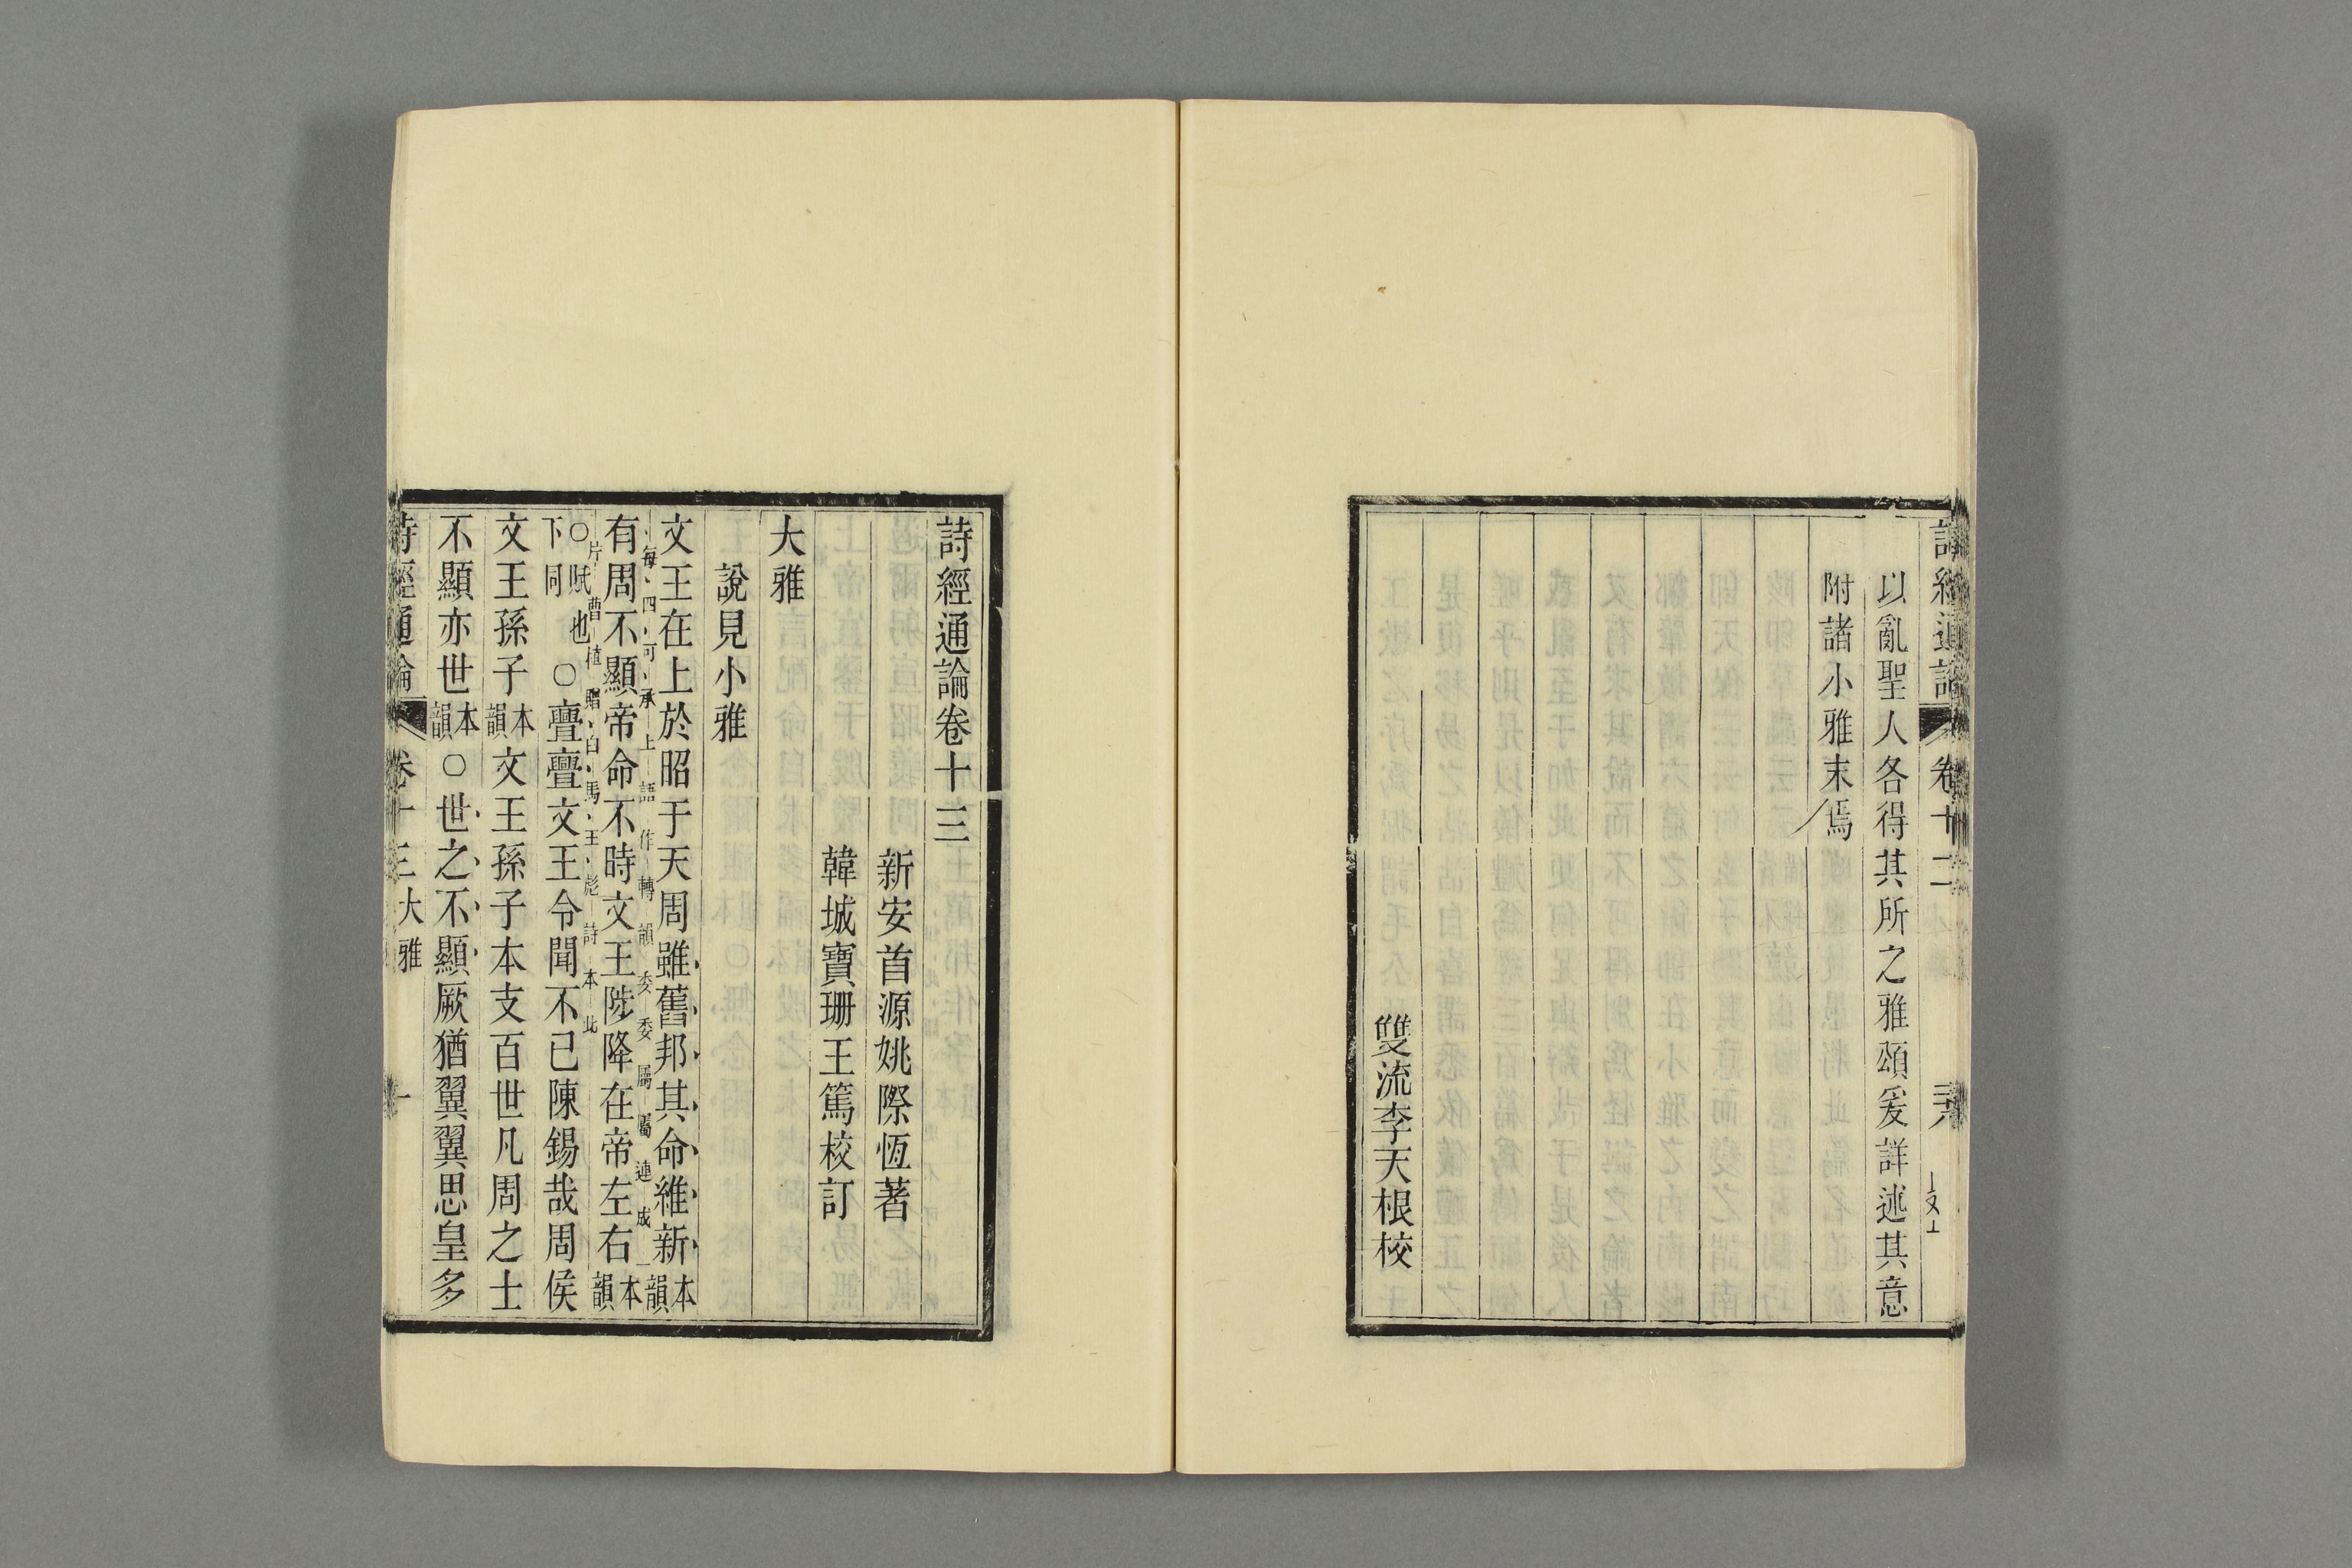 詩經通論 卷十二 
以亂聖人各得其所之雅頌爰詳述其意
附諸小雅末焉
雙流李天根校
詩經通論卷十三
新安首源姚際恆著
韓城寶珊王篤校訂
大雅
說見小雅
文王在上於昭于天周雖舊邦其命維新本韻
每四句承上語作轉韻委委屬屬連成一
有周不顯帝命不時文王陟降在帝左右本韻
片曹植贈白馬王彪詩本此
○賦也下同○亹亹文王令聞不已陳錫哉周侯
文王孫子本韻文王孫子本支百世凡周之士
不顯亦世本韻○世之不顯厥猶翼翼思皇多
詩經通論 卷十三 大雅 一